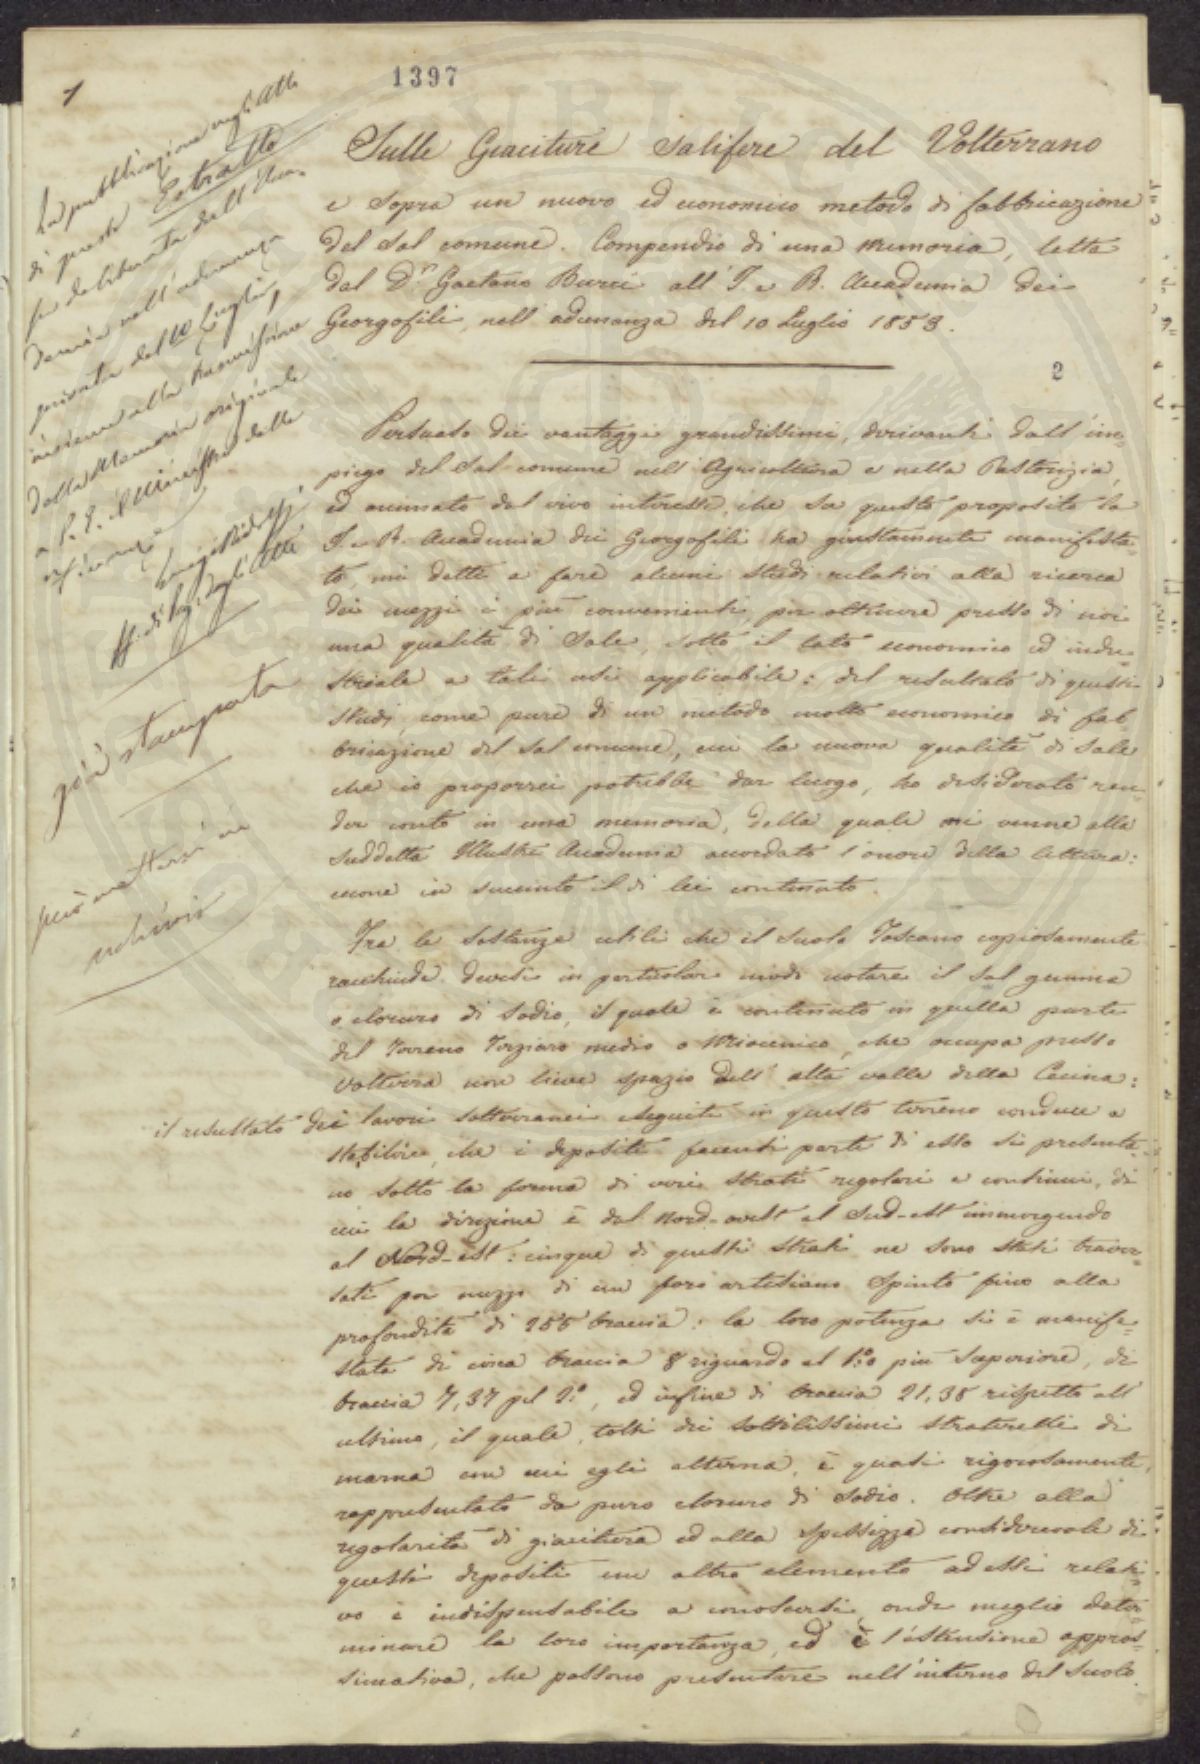 1
1397
Sulle Giaciture salifere del Volterrano
e sopra un nuovo ed economico metodo di fabbricazione
del Sal comune. Compendio di una Memoria, letta
dal D.r Gaetano Burci all'I. e R. Accademia dei
Georgofili, nell'adunanza del 10 Luglio 1853.
2
La pubblicazione negli Atti
di questo Estratto
fu deliberata dall'Acca-
demia nell'adunanza
privata del 10 Luglio,
insieme alla trasmissione
della Memoria originale
a S. E. il Ministro delle
finanze
Luigi Ridolfi
già stampata
può mettersi in
archivio
Persuaso dei vantaggi grandissimi, derivanti dall'im-
piego del Sal comune nell'Agricoltura e nella Pastorizia,
ed animato dal vivo interesse, che su questo proposito la
I. e R. Accademia dei Georgofili ha giustamente manifesta-
to, mi detti a fare alcuni studi relativi alla ricerca
dei mezzi i più convenienti, per ottenere presso di noi
una qualità di Sale, sotto il lato economico ed indu-
striale a tali usi applicabile: del resultato di questi
studj, come pure di un metodo molto economico di fab-
bricazione del Sal comune, cui la nuova qualità di Sale
che io proporrei potrebbe dar luogo, ho desiderato ren-
der conto in una memoria, della quale mi venne alla
suddetta Illustre Accademia accordato l'onore della lettura:
eccone in succinto il di lei contenuto.
Tra le sostanze utili che il suolo Toscano copiosamente
racchiude devesi in particolar modo notare il sal gemma
o cloruro di Sodio, il quale è contenuto in quella parte
del Terreno Terziario medio o Miocenico, che occupa presso
Volterra non lieve spazio dell'alta valle della Cecina:
il resultato dei lavori sotterranei eseguiti in questo terreno conduce a
stabilire, che i depositi facenti parte di esso si presenta-
no sotto la forma di veri strati regolari e continui, di
cui la direzione è dal Nord-ovest al Sud-est immergendo
al Nord-est: cinque di questi strati ne sono stati traver-
sati per mezzo di un foro artesiano spinto fino alla
profondità di 255 braccia: la loro potenza si è manife-
stata di circa braccia 8 riguardo al 1.o più superiore, di
braccia 7,37 pel 2.o, ed infine di braccia 21,38 rispetto all'
ultimo, il quale, tolti dei sottilissimi straterelli di
marna con cui egli alterna, è quasi rigorosamente
rappresentato da puro cloruro di Sodio. Oltre alla
regolarità di giacitura ed alla spessezza considerevole di
questi depositi un altro elemento ad essi relati-
vo è indispensabile a conoscersi, onde meglio deter-
minare la loro importanza, ed è l'estensione appros-
simativa, che possono presentare nell'interno del suolo.